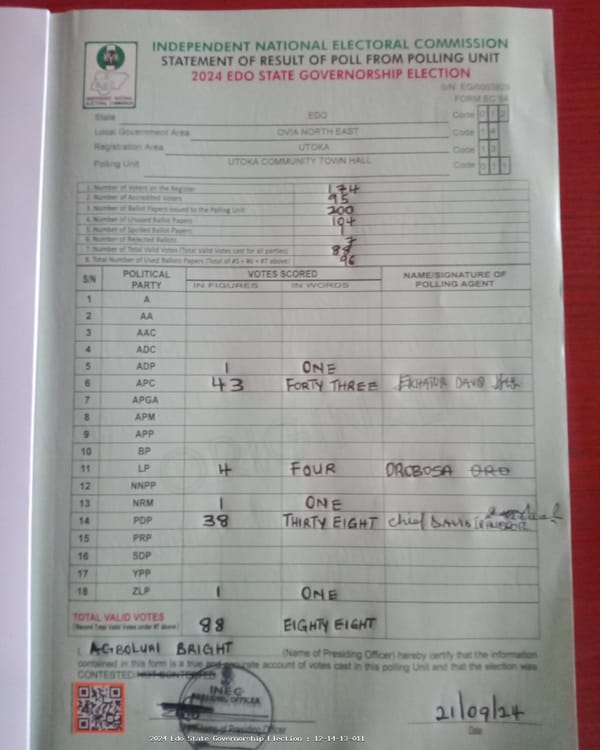 INDEPENDENT NATIONAL ELECTORAL COMMISSION
STATEMENT OF RESULT OF POLL FROM POLLING UNIT
2024 EDO STATE GOVERNORSHIP ELECTION
FORM EC 8A
State EDO Code 0 1 2
Local Government Area OVIA NORTH EAST Code 1 4
Registration Area UTOKA Code 1 3
Polling Unit UTOKA COMMUNITY TOWN HALL Code 0 1 1
1. Number of Voters on the Register 174
2. Number of Accredited Voters 95
3. Number of Ballot Papers Issued to the Polling Unit 200
4. Number of Unused Ballot Papers 104
5. Number of Spoiled Ballot Papers 1
6. Number of Rejected Ballots 7
7. Number of Total Valid Votes (Total Valid Votes cast for all parties) 88
8. Total Number of Used Ballots Papers (Total of #5 + #6 + #7 above) 96
S/N POLITICAL PARTY VOTES SCORED NAME/SIGNATURE OF POLLING AGENT
IN FIGURES IN WORDS
1 A
2 AA
3 AAC
4 ADC
5 ADP 1 ONE
6 APC 43 FORTY THREE DAVID
7 APGA
8 APM
9 APP
10 BP
11 LP 4 FOUR OROBOSA
12 NNPP
13 NRM 1 ONE
14 PDP 38 THIRTY EIGHT Chief DAVID
15 PRP
16 SDP
17 YPP
18 ZLP 1 ONE
TOTAL VALID VOTES 88 EIGHTY EIGHT
(Record Total Valid Votes under #7 above)
I, AGBOLUAI BRIGHT (Name of Presiding Officer) hereby certify that the information
contained in this form is a true and accurate account of votes cast in this polling Unit and that the election was
CONTESTED/NOT CONTESTED
INEC
PRESIDING OFFICER
21/09/24
Name of Presiding Officer Date
2024 Edo State Governorship Election : 12-14-13-011